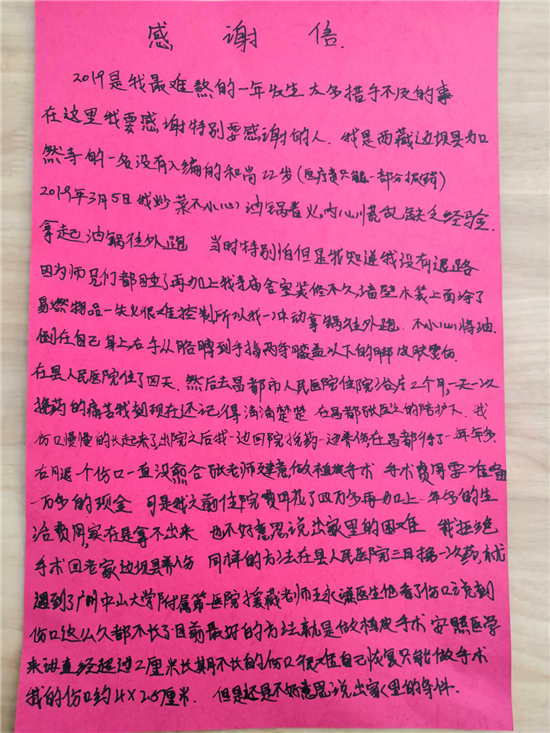 感谢信.
2019是我最难熬的一年发生太多措手不及的事
在这里我要感谢特别要感谢的人. 我是西藏边坝县加
然寺的一名没有入编的和尚22岁(医疗费只能一部分报销)
2019年3月5日我炒菜不小心油锅着火,内心慌乱缺乏经验.
拿起油锅往外跑 当时特别怕但是我知道我没有退路
因为师兄们都睡了再加上我寺庙舍室装修不久,墙壁木装上面涂了
易燃物品一失火很难控制所以我一冲动拿锅往外跑.不小心将油.
倒在自己身上右手从胳膊到手指两条膝盖以下的脚皮肤烫伤
在县人民医院住了四天.然后去昌都市人民医院住院治疗2个月,一天一次
换药的痛苦我到现在还记得清清楚楚 在昌都张医生的陪护下.我
伤口慢慢的长起来了出院之后我一边回院换药一边养伤在昌都待了一年年多
右腿一个伤口一直没愈合张老师建意做植皮手术 手术费用需准备
一万多的现金 可是我之前住院费用花了四万多再加上一年多的生
活费用,实在是拿不出来 也不好意思说出家里的困难 我拒绝
手术回老家边坝县养伤 同样的方法在县人民医院三日换一次药,就
遇到了广州中山大学附属第一医院援藏老师王永谦医生他看了伤口说到
伤口这么久都不长了目前最好的方法就是做植皮手术 安照医学
来讲直经超过2厘米长期不长的伤口很难自己恢复只能做手术
我的伤口约4×2.5厘米. 但是还是不好意思说出家里的条件.